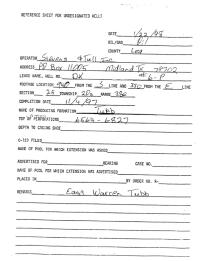 REFERENCE SHEET FOR UNDESIGNATED WELLS
DATE 1/22/98
OIL/GAS Oil
COUNTY Lea
OPERATOR Stevens & Tull Inc
ADDRESS PO Box 11005 Midland Tx 79702
LEASE NAME, WELL NO. DK #6-P
FOOTAGE LOCATION FROM THE S LINE AND 330 FROM THE E LINE
SECTION 25 TOWNSHIP 20s RANGE 38E
COMPLETION DATE 11/4/97
NAME OF PRODUCING FORMATION Tubb
TOP OF PERFORATIONS 6564-6827
DEPTH TO CASING SHOE
C-123 FILED
NAME OF POOL FOR WHICH EXTENSION WAS ASKED
ADVERTISED FOR HEARING CASE NO.
NAME OF POOL FOR WHICH EXTENSION WAS ADVERTISED
PLACED IN BY ORDER NO. R-
REMARKS East Warren Tubb